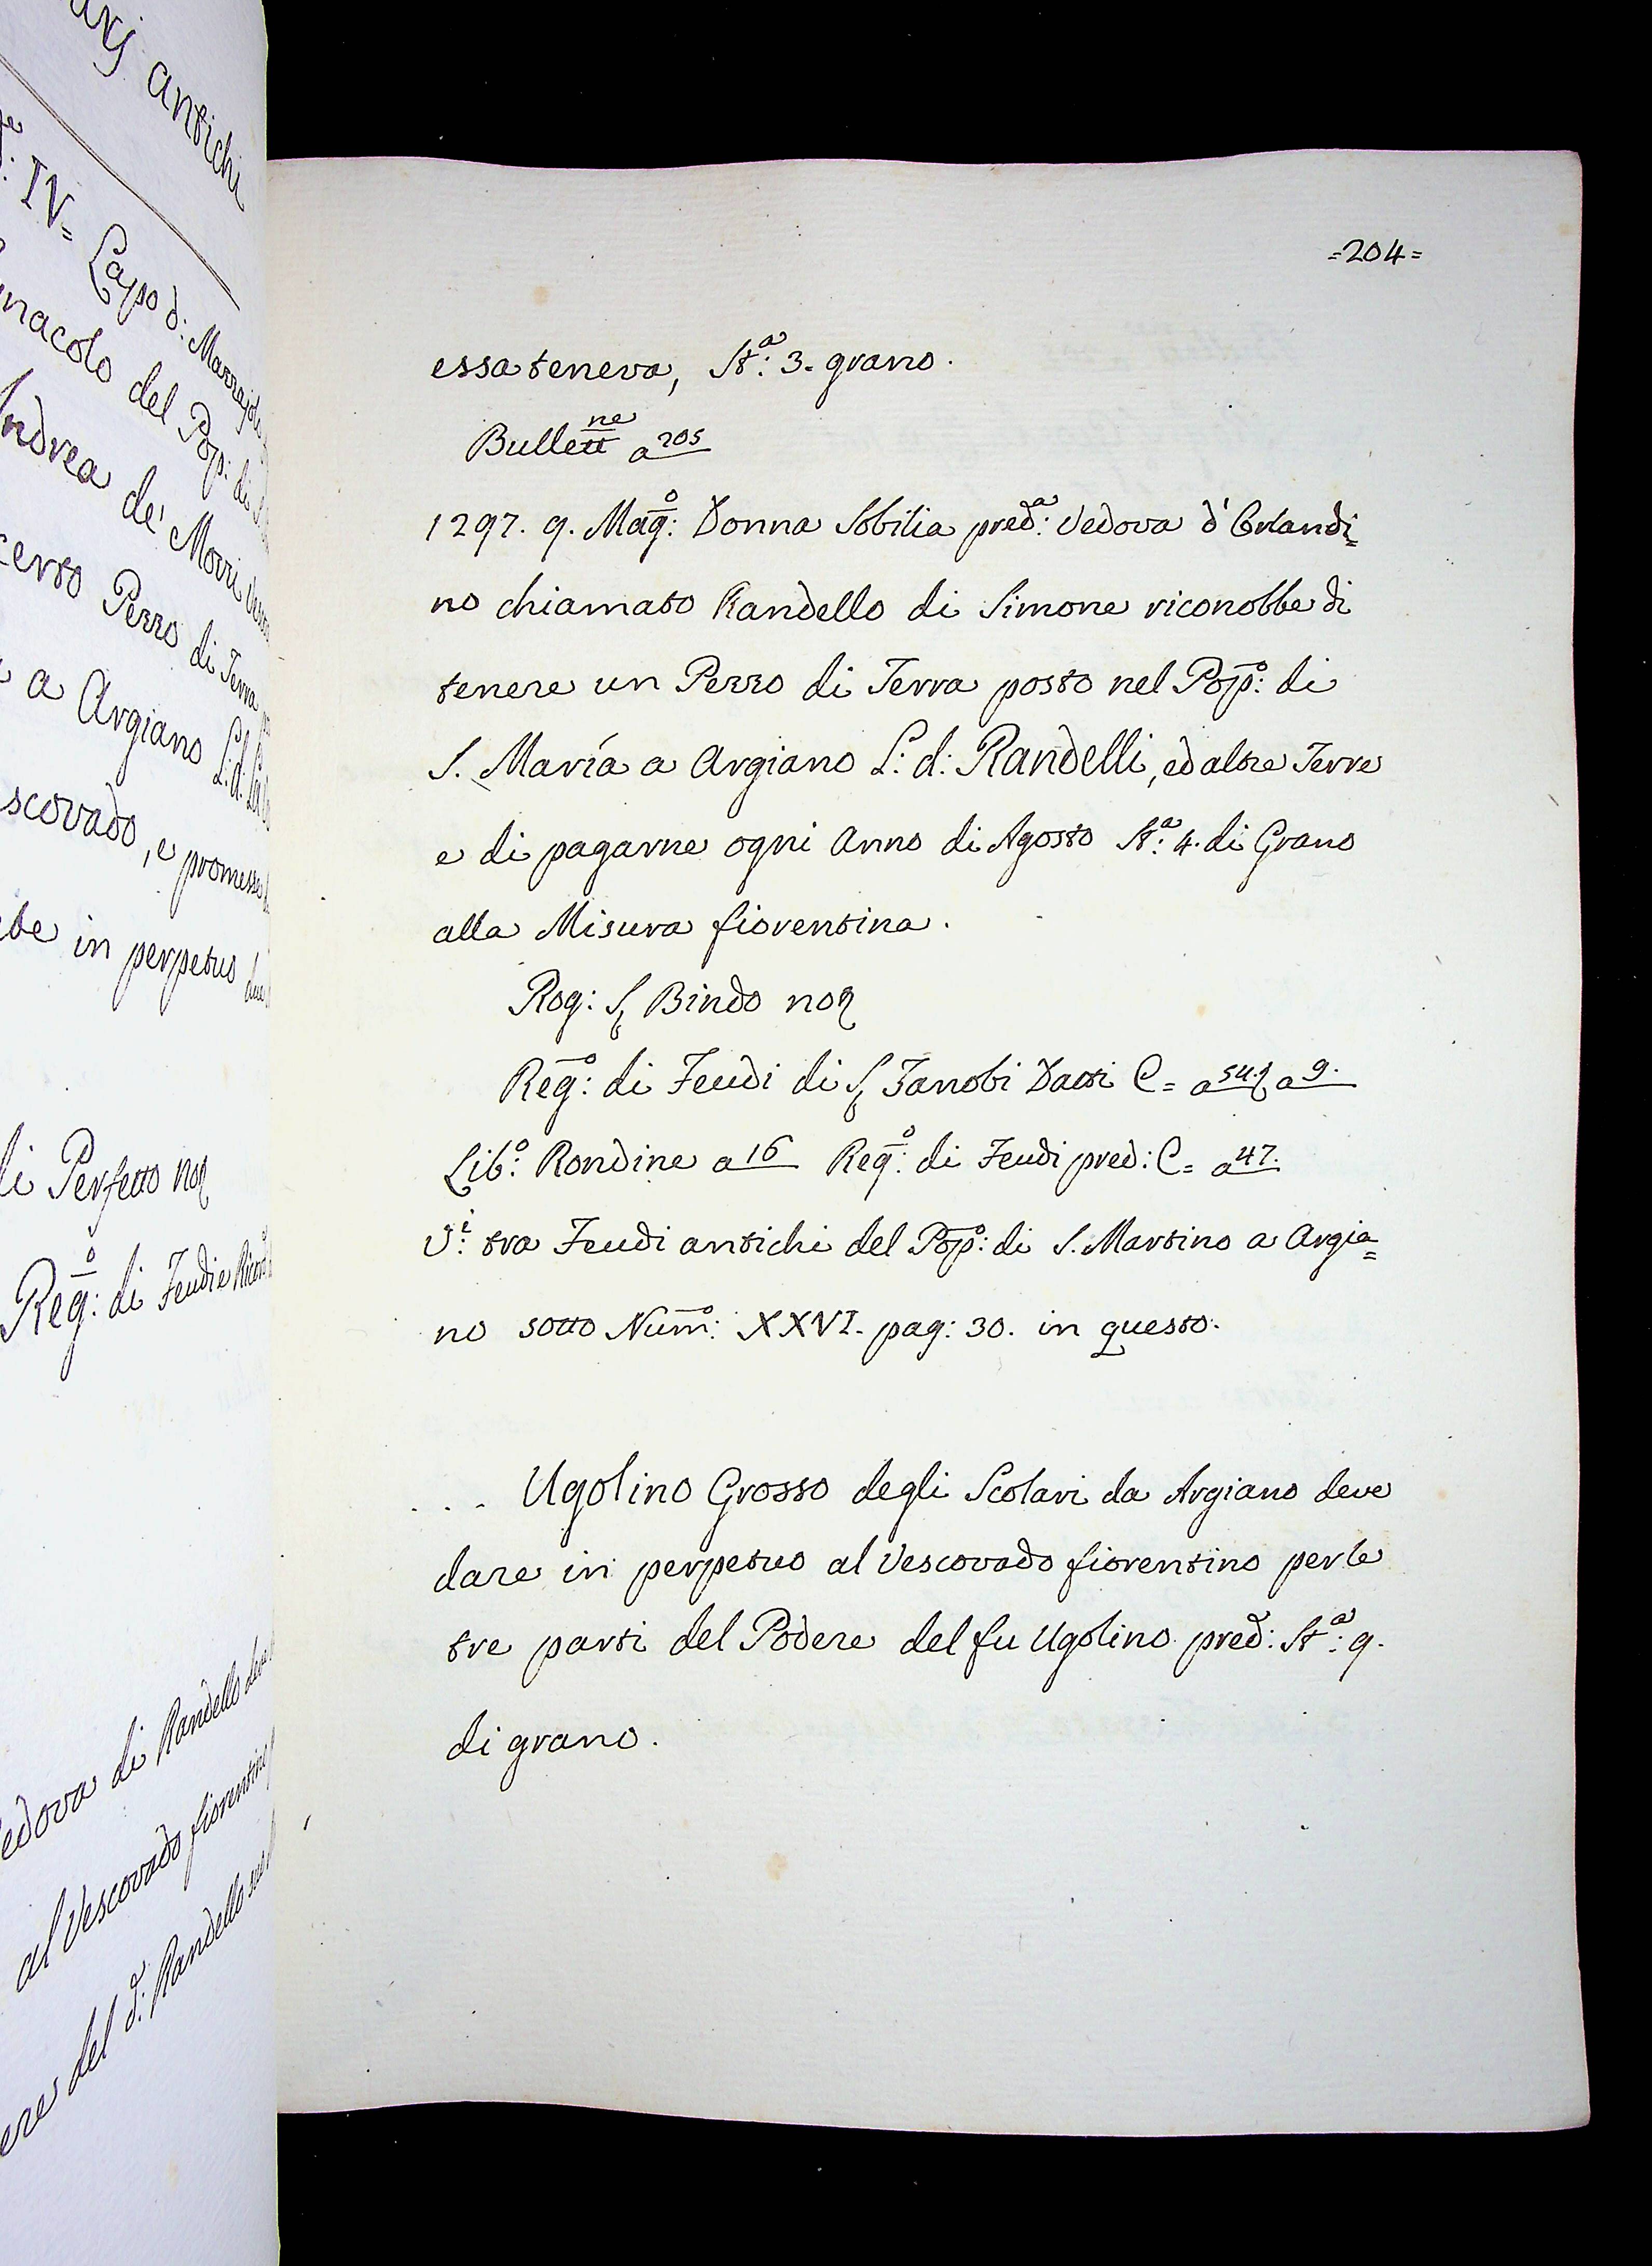 arj antichi
IV= Lapo d: Marzapole
nacolo del Pop: di
Andrea de' Mozzi Vesco
certo Pezzo di Terra
a Argiano L: d:
scovado, e promesse
in perpetuo due
di Perfetto noz
Regº: di Feudi e Ricord
edova di Randello deve
al Vescovado fiorentino
del d: Randello suo
=204=
essa teneva, Stª: 3. grano.
Bullettne a 205
1297. 9. Magº: Donna Sobilia predª: Vedova d'Orlandi=
no chiamato Randello di Simone riconobbe di
tenere un Pezzo di Terra posto nel Popº: di
S. María a Argiano L: d: Randelli, ed altre Terre
e di pagarne ogni Anno di Agosto Stª: 4. di Grano
alla Misura fiorentina.
Rog: S. Bindo noz
Regº: di Feudi di S. Zanobi Datti C= a 54. a 9.
Libº: Rondine a 16 Regº: di Feudi pred: C= a 47.
Vⁱ: tra Feudi antichi del Popº: di S. Martino a Argia=
no sotto Numº: XXVI. pag: 30. in questo.
... Ugolino Grosso degli Scolari da Argiano deve
dare in perpetuo al Vescovado fiorentino per le
tre parti del Podere del fu Ugolino pred: Stª: 9.
di grano.